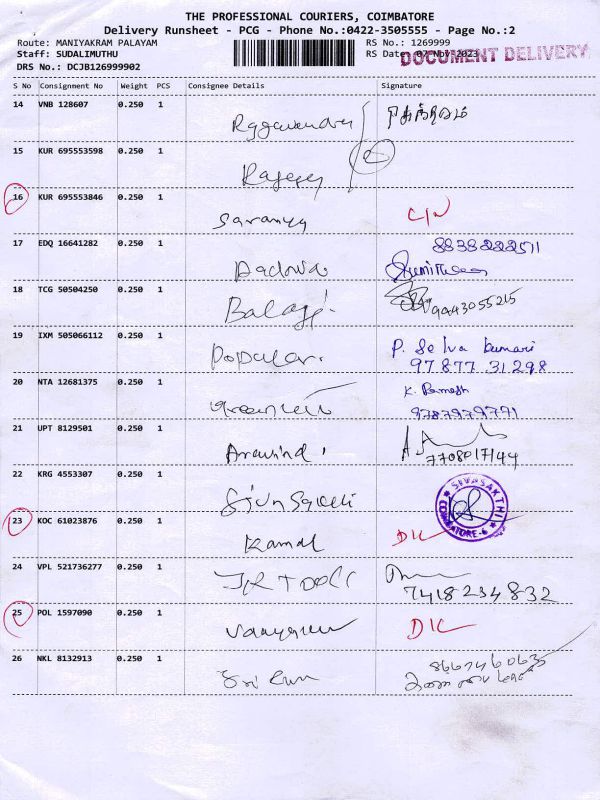 THE PROFESSIONAL COURIERS, COIMBATORE
Delivery Runsheet - PCG - Phone No.:0422-3505555 - Page No.:2
Route: MANIYAKRAM PALAYAM RS No.: 1269999
Staff: SUDALIMUTHU RS Date: 07-Nov-2023 DOCUMENT DELIVERY
DRS No.: DCJB126999902
S No Consignment No Weight PCS Consignee Details Signature
14 VNB 128607 0.250 1
Raggavendra
15 KUR 695553598 0.250 1
Rajesey
16 KUR 695553846 0.250 1
Saranya C/N
17 EDQ 16641282 0.250 1 8838222511
Dadowa
18 TCG 50504250 0.250 1
Balaji 9443055215
19 IXM 505066112 0.250 1
Popular. P. Selva kumari
97877 31298
20 NTA 12681375 0.250 1 K. Ramesh
9787979791
21 UPT 8129501 0.250 1
Aravind 7708017144
22 KRG 4553307 0.250 1 SIVASAKTHI
COIMBATORE-6
23 KOC 61023876 0.250 1 DIL
Kamal
24 VPL 521736277 0.250 1
7418234832
25 POL 1597090 0.250 1 DIL
26 NKL 8132913 0.250 1
Sri